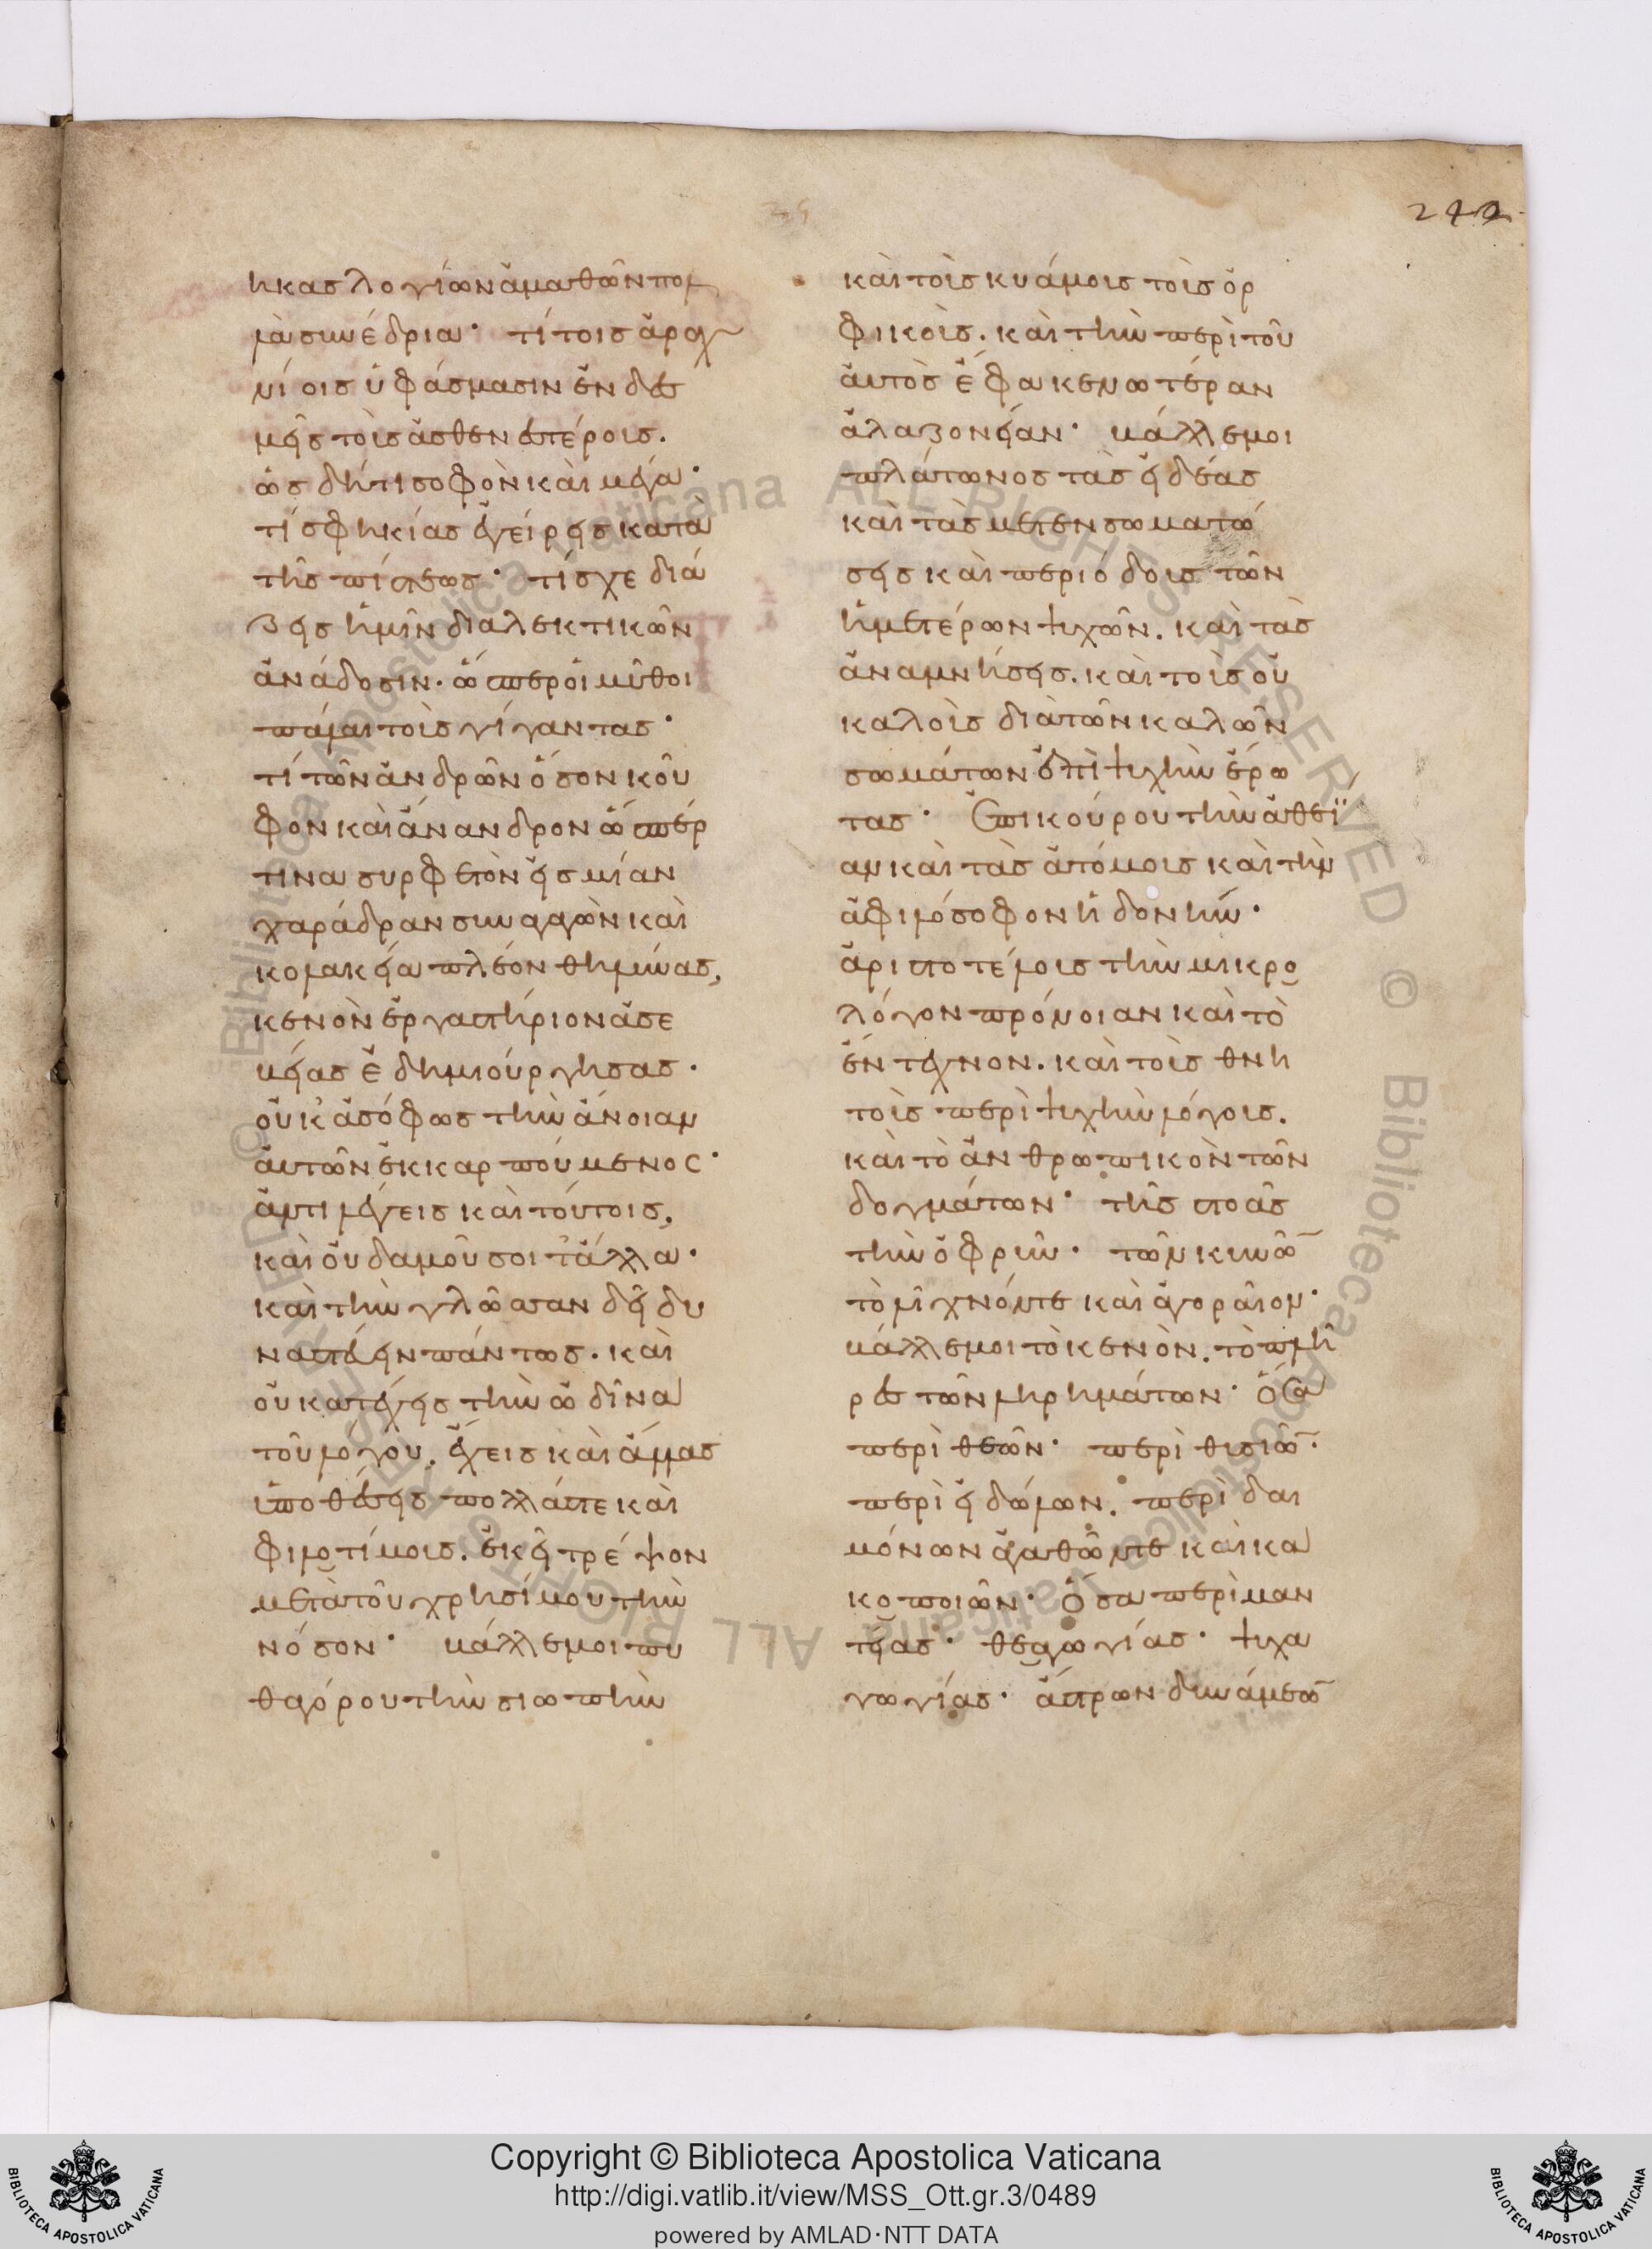 242
ηκας λογίων ἀμαθῶν πολ
λὰ συνέδρια· τί τοῖς ἀραχ
νίοις ὑφάσμασιν ἐνδεσ
μεῖς τοὺς ἀσθενεστέρους.
ὡς δή τι σοφὸν καὶ μέγα·
τί σφηκίας ἐγείρεις κατὰ
τῆς πίστεως· τί σχεδιά
ζεις ἡμῖν διαλεκτικῶν
ἀνάδοσιν. ὥσπερ οἱ μῦθοι
πάλαι τοὺς γίγαντας·
τί τῶν ἀνδρῶν ὅσον κοῦ
φον καὶ ἄνανδρον ὥσπέρ
τινα συρφετὸν εἰς μίαν
χαράδραν συναγαγὼν καὶ
κολακείᾳ πλέον θηλύνας,
κενὸν ἐργαστήριον ἀσε
βείας ἐδημιούργησας.
οὐκ ἀσόφως τὴν ἄνοιαν
αὐτῶν ἐκκαρπούμενος·
ἀντιλέγεις καὶ τούτοις,
καὶ οὐδαμοῦ σοι τἄλλα·
καὶ τὴν γλῶσσαν δεῖ δυ
ναστεύειν πάντως. καὶ
οὐ κατέχεις τὴν ὠδῖνα
τοῦ λόγου. ἔχεις καὶ ἄλλας
ὑποθέσεις πολλάς τε καὶ
φιλοτίμους. ἐκεῖ τρέψον
μετὰ τοῦ χρησίμου τὴν
νόσον· βάλλέ μοι πυ
θαγόρου τὴν σιωπὴν
καὶ τοὺς κυάμους τοὺς ὀρ
φικοὺς. καὶ τὴν περὶ τοῦ
αὐτὸς ἔφα κενωτέραν
ἀλαζονείαν· βάλλέ μοι
πλάτωνος τὰς ἰδέας
καὶ τὰς μετενσωματώ
σεις καὶ περιόδους τῶν
ἡμετέρων ψυχῶν. καὶ τὰς
ἀναμνήσεις. καὶ τοὺς οὐ
καλοὺς διὰ τῶν καλῶν
σωμάτων ἐπὶ ψυχὴν ἔρω
τας· Ἐπικούρου τὴν ἀθεΐ
αν καὶ τὰς ἀτόμους καὶ τὴν
ἀφιλόσοφον ἡδονήν·
ἀριστοτέλους τὴν μικρο
λόγον πρόνοιαν καὶ τὸ
ἔντεχνον. καὶ τοὺς θνη
τοὺς περὶ ψυχὴν λόγους.
καὶ τὸ ἀνθρωπικὸν τῶν
δογμάτων· τῆς στοᾶς
τὴν ὀφρῦν· τῶν κυνῶν
τὸ λίχνόν τε καὶ ἀγοραῖον·
βάλλέ μοι τὸ κενὸν. τὸ πλῆ
ρες τῶν ληρημάτων· ὅσα
περὶ θεῶν· περὶ θυσιῶν·
περὶ εἰδώλων. περὶ δαι
μόνων ἀγαθῶν τε καὶ κα
κοποιῶν· ὅσα περὶ μαν
τείας· θεαγωγίας· ψυχα
γωγίας· ἄστρων δυνάμεων
Copyright © Biblioteca Apostolica Vaticana
http://digi.vatlib.it/view/MSS_Ott.gr.3/0489
powered by AMLAD·NTT DATA